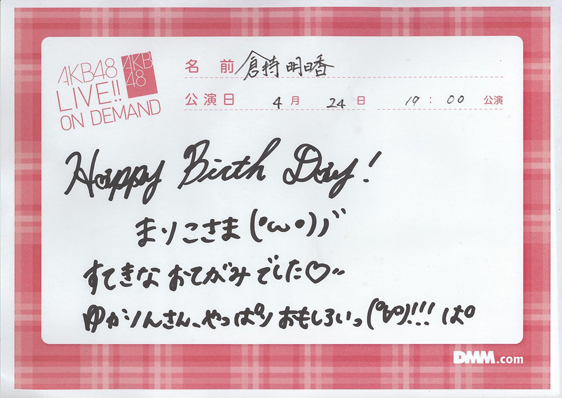 AKB48
LIVE!!
ON DEMAND
AKB
48
名 前 倉持明日香
公演日 4 月 24 日 19 : 00 公演
Happy Birth Day!
まりこさま(°ω°)ノ゛
すてきなおてがみでした♡~
ゆかりんさん、やっぱりおもしろいっ(°∀°)!!! ぱ
DMM.com